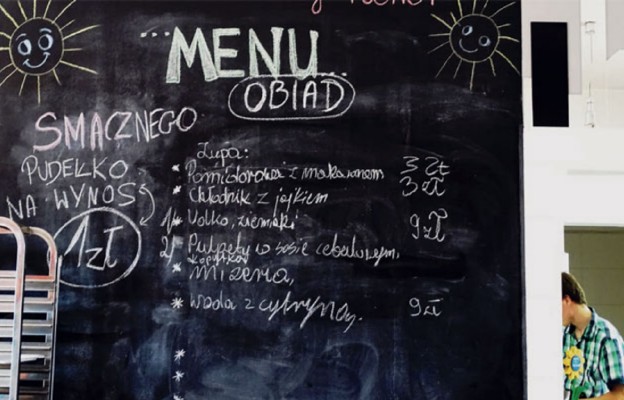 ...MENU...
OBIAD
SMACZNEGO
PUDEŁKO
NA WYNOS
1zł
Zupa:
* Pomidorowa z makaronem 3 zł
* Chłodnik z jajkiem 3 zł
1/ ziemniaki 9 zł
2/ Pulpety w sosie cebulowym,
* mizeria,
* woda z cytryną. 9 zł
*
*